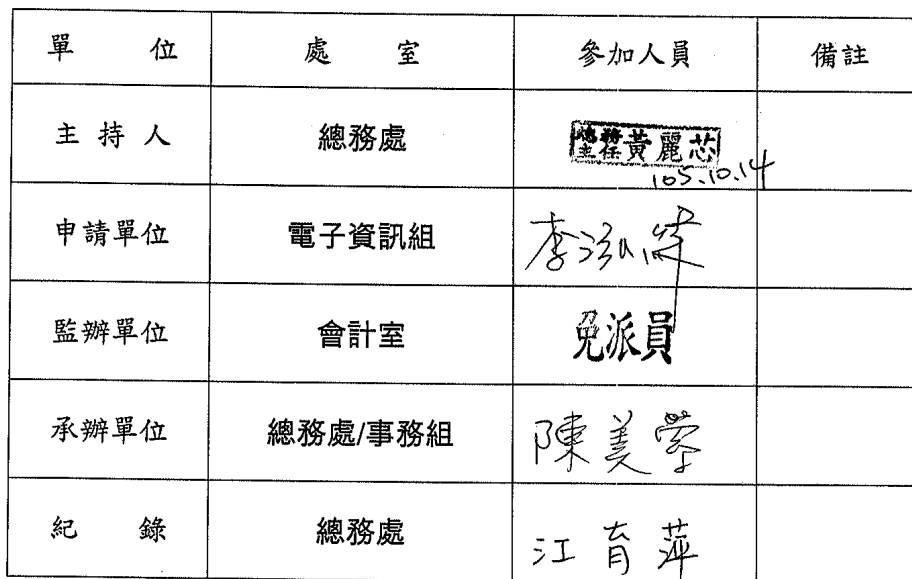 單 位 處 室 參加人員 備註
主 持 人 總務處 總務主任 黃麗芯
105.10.14
申請單位 電子資訊組 李泓
監辦單位 會計室 免派員
承辦單位 總務處/事務組 陳美瑩
紀 錄 總務處 江育萍